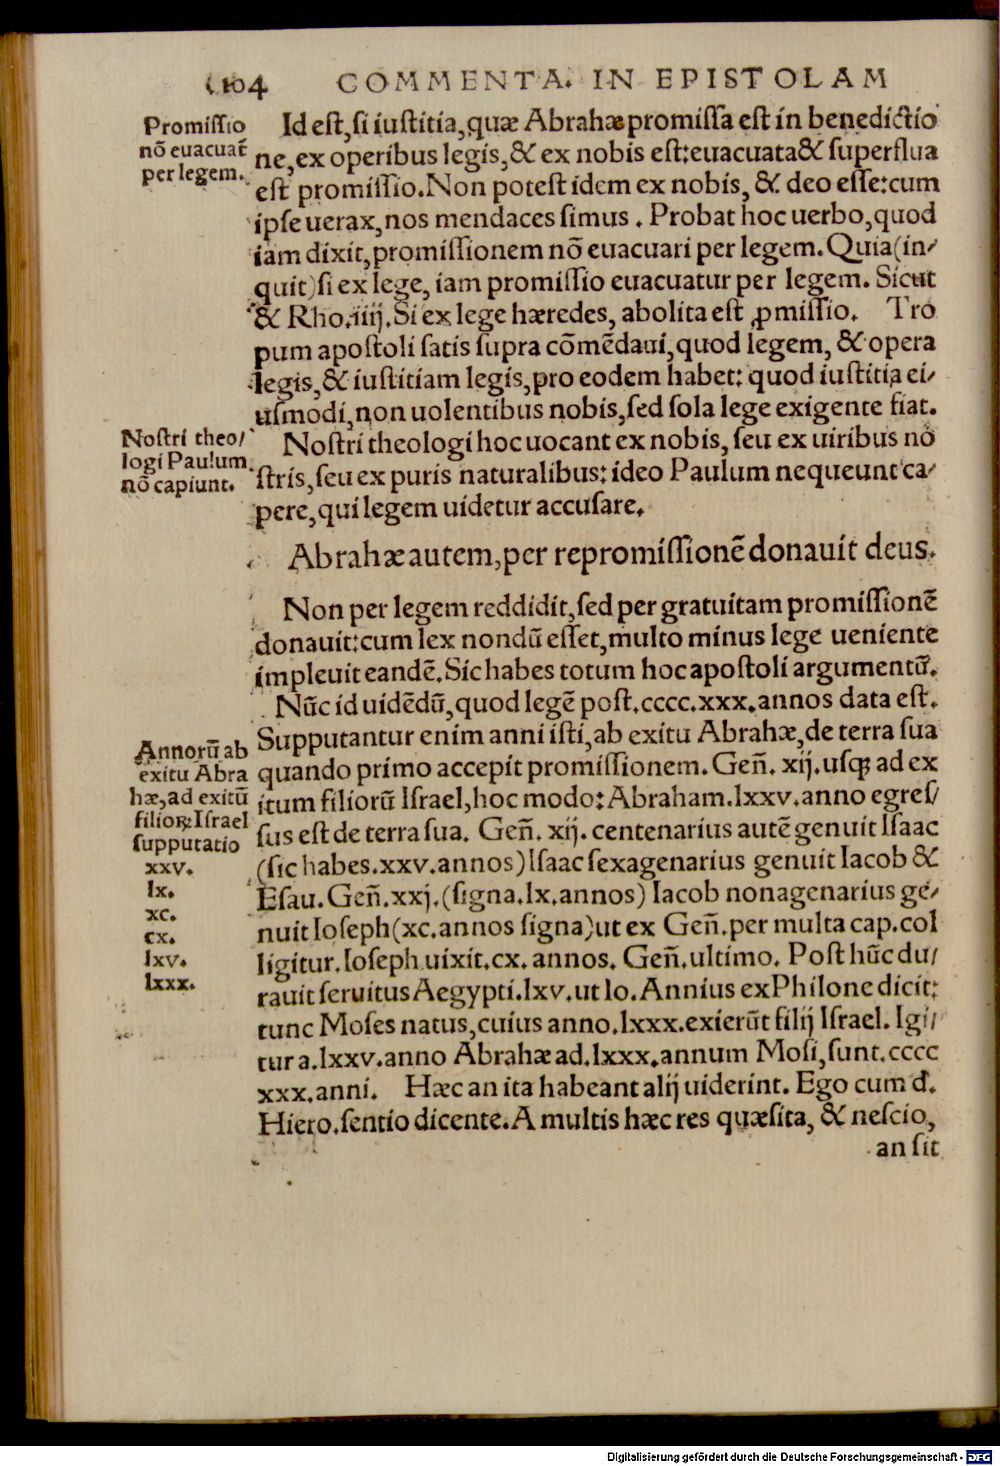 104 COMMENTA. IN EPISTOLAM
Promiſſio
nõ euacuat̃
per legem.
Id eſt,ſi iuſtitia,quæ Abrahæ promiſſa eſt in benedictio
ne,ex operibus legis,& ex nobis eſt:euacuata& ſuperflua
eſt promiſſio.Non poteſt idem ex nobis, & deo eſſe:cum
ipſe uerax,nos mendaces ſimus . Probat hoc uerbo,quod
iam dixit,promiſſionem nõ euacuari per legem.Quia(in/
quit)ſi ex lege, iam promiſſio euacuatur per legem. Sicut
& Rho.iiij.Si ex lege hæredes, abolita eſt ꝓmiſſio. Tro
pum apoſtoli ſatis ſupra cõmẽdaui,quod legem, & opera
legis,& iuſtitiam legis,pro eodem habet: quod iuſtitia ei/
uſmodi,non uolentibus nobis,ſed ſola lege exigente fiat.
Noſtri theo/
logi Paulum
nõ capiunt.
Noſtri theologi hoc uocant ex nobis, ſeu ex uiribus no
ſtris,ſeu ex puris naturalibus: ideo Paulum nequeunt ca/
pere,qui legem uidetur accuſare.
Abrahæ autem,per repromiſſionẽ donauit deus.
Non per legem reddidit,ſed per gratuitam promiſſionẽ
donauit:cum lex nondũ eſſet,multo minus lege ueniente
impleuit eandẽ.Sic habes totum hoc apoſtoli argumentũ.
Nũc id uidẽdũ,quod legẽ poſt.cccc.xxx.annos data eſt.
Annorũ ab
exitu Abra
hæ,ad exitũ
filioꝝ Iſrael
ſupputatio
xxv.
lx.
xc.
cx.
lxv.
lxxx.
Supputantur enim anni iſti,ab exitu Abrahæ,de terra ſua
quando primo accepit promiſſionem.Geñ. xij.uſqꝫ ad ex
itum filiorũ Iſrael,hoc modo:Abraham.lxxv.anno egreſ/
ſus eſt de terra ſua. Geñ. xij. centenarius autẽ genuit Iſaac
(ſic habes.xxv.annos)Iſaac ſexagenarius genuit Iacob &
Eſau.Geñ.xxj.(ſigna.lx.annos) Iacob nonagenarius ge/
nuit Ioſeph(xc.annos ſigna)ut ex Geñ.per multa cap.col
ligitur.Ioſeph uixit.cx. annos. Geñ.ultimo. Poſt hũc du/
rauit ſeruitus Aegypti.lxv.ut Io.Annius ex Philone dicit:
tunc Moſes natus,cuius anno.lxxx.exierũt filij Iſrael. Igi/
tur a.lxxv.anno Abrahæ ad.lxxx.annum Moſi,ſunt.cccc
xxx.anni. Hæc an ita habeant alij uiderint. Ego cum d.
Hiero.ſentio dicente.A multis hæc res quæſita, & neſcio,
an ſit
Digitalisierung gefördert durch die Deutsche Forschungsgemeinschaft - DFG